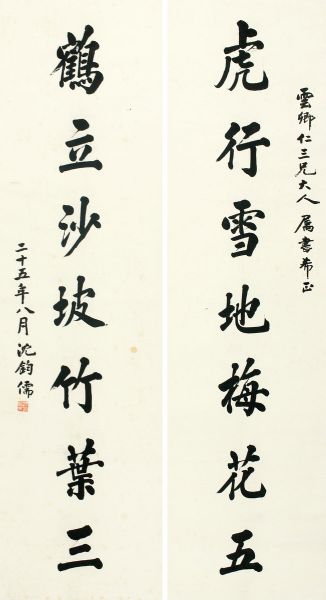 雲卿仁三兄大人屬書希正
虎行雪地梅花五
鶴立沙坡竹葉三
二十五年八月沈鈞儒